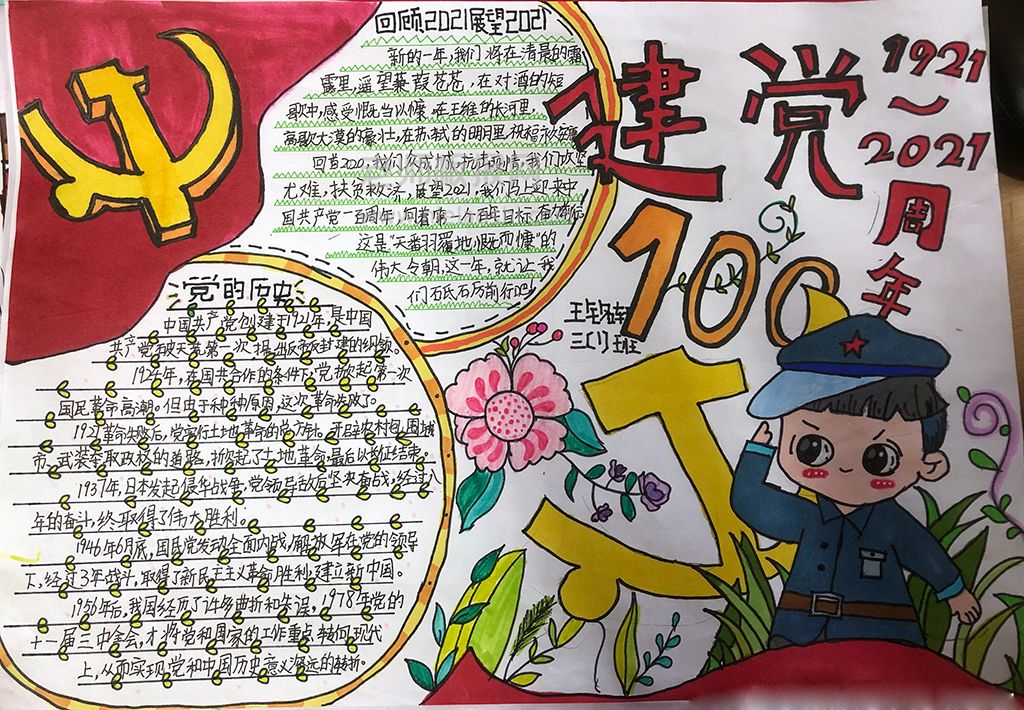 回顾2021展望2021
新的一年,我们将在清晨的霜
露里,遥望蒹葭苍苍,在对酒的短
歌中,感受慨当以慷,在王维的长河里,
高歌大漠的豪壮,在苏轼的明月里,祝福永
回首2020,我们众志成城抗击疫情,我们攻坚
尤难,扶贫救济,展望2021,我们马上迎来中
国共产党一百周年,向着第一个百年目标,奋
这是“天番羽覆地慨而慷”的
伟大今朝,这一年,就让我
们石氏石厉前行吧!
建党
100
1921~2021
周年
三(1)班
党的历史
中国共产党创建于1921年,是中国
共产党破天荒第一次提出反帝反封建的纲领。
1924年,在国共合作的条件下,党掀起第一次
国民革命高潮。但由于种种原因,这次革命失败了。
1927革命失败后,党实行土地革命的总方针。开辟农村包围城
市、武装夺取政权的道路,掀起了土地革命,最后以
结束。
1937年,日本发起侵华战争,党领导敌后坚决奋战,经过八
年的奋斗,终取得了伟大胜利。
1946年6月底,国民党发动全面内战,解放军在党的领导
下,经过3年战斗,取得了新民主主义革命胜利,建立新中国。
1956年后,我国经历了许多曲折和失误,1978年党的
十一届三中全会,才将党和国家的工作重点转向现代
上,从而实现党和中国历史意义深远的转折。